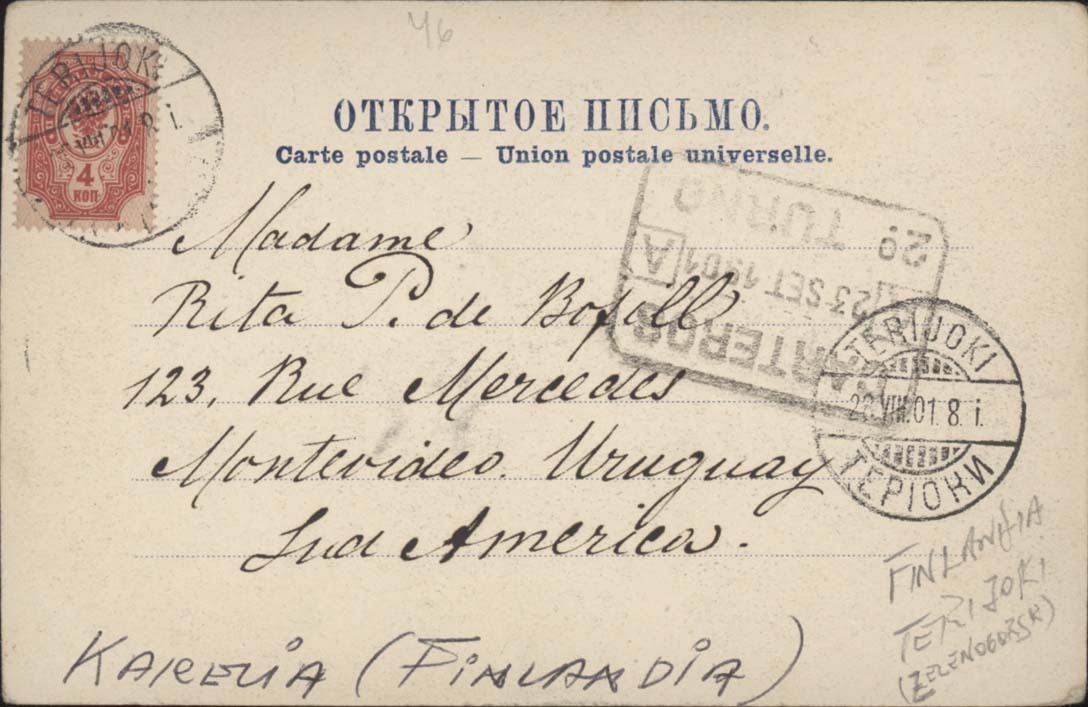 46
TERIJOKI
VIII 8 i.
4
КОП
ОТКРЫТОЕ ПИСЬМО.
Carte postale — Union postale universelle.
CARTEROS
A 23 SET 1901 A
2º TURNO
Madame
Rita P. de Bofill
123, Rue Mercedes
Montevideo. Uruguay
Sud America.
TERIJOKI
VIII.01. 8 i.
ТЕРІОКИ
FINLANDIA
TERIJOKI
(ZELENOGORSK)
KARELIA (FINLANDIA)